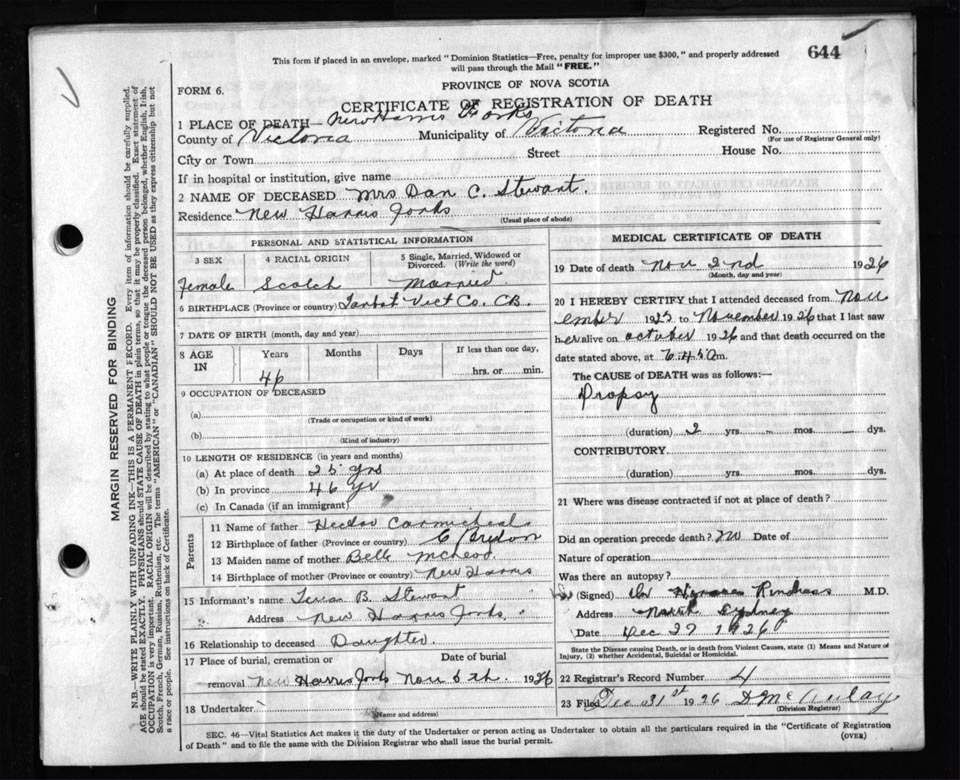 644
This form if placed in an envelope, marked "Dominion Statistics—Free, penalty for improper use $300," and properly addressed
will pass through the Mail "FREE."
PROVINCE OF NOVA SCOTIA
FORM 6.
CERTIFICATE OF REGISTRATION OF DEATH
1 PLACE OF DEATH— New Harris Forks
County of Victoria Municipality of Victoria Registered No.
(For use of Registrar General only)
City or Town Street House No.
If in hospital or institution, give name
2 NAME OF DECEASED Mrs Dan C. Stewart.
Residence New Harris Forks
(Usual place of abode)
PERSONAL AND STATISTICAL INFORMATION
3 SEX 4 RACIAL ORIGIN 5 Single, Married, Widowed or
Divorced. (Write the word)
Female Scotch Married
6 BIRTHPLACE (Province or country) Tarbot Vict Co. CB.
7 DATE OF BIRTH (month, day and year)
8 AGE IN Years Months Days If less than one day,
hrs. or min.
46
9 OCCUPATION OF DECEASED
(a)
(Trade or occupation or kind of work)
(b)
(Kind of industry)
10 LENGTH OF RESIDENCE (in years and months)
(a) At place of death 25 yrs
(b) In province 46 yr
(c) In Canada (if an immigrant)
Parents
11 Name of father Hector Carmicheal
12 Birthplace of father (Province or country) C Breton
13 Maiden name of mother Belle McLeod
14 Birthplace of mother (Province or country) New Harris
15 Informant's name B. Stewart
Address New Harris Forks.
16 Relationship to deceased Daughter
17 Place of burial, cremation or Date of burial
removal New Harris Forks Nov 6th. 1926
18 Undertaker
(Name and address)
MEDICAL CERTIFICATE OF DEATH
19 Date of death Nov 2nd 1926
(Month, day and year)
20 I HEREBY CERTIFY that I attended deceased from Nov
ember 1925 to November 1926 that I last saw
her alive on october 1926 and that death occurred on the
date stated above, at 6.45 a m.
The CAUSE of DEATH was as follows:—
Dropsy
(duration) 2 yrs. mos. dys.
CONTRIBUTORY.
(duration) yrs. mos. dys.
21 Where was disease contracted if not at place of death?
Did an operation precede death? no Date of
Nature of operation
Was there an autopsy?
(Signed) Dr Rindress M.D.
Address North Sydney
Date Dec 27 1926
State the Disease causing Death, or in death from Violent Causes, state (1) Means and Nature of
Injury, (2) whether Accidental, Suicidal or Homicidal.
22 Registrar's Record Number 4
23 Filed Dec 31st 1926 D. McAulay
(Division Registrar)
SEC. 46—Vital Statistics Act makes it the duty of the Undertaker or person acting as Undertaker to obtain all the particulars required in the "Certificate of Registration
of Death" and to file the same with the Division Registrar who shall issue the burial permit.
(OVER)
MARGIN RESERVED FOR BINDING
N.B.—WRITE PLAINLY WITH UNFADING INK—THIS IS A PERMANENT RECORD. Every item of information should be carefully supplied.
AGE should be stated EXACTLY. PHYSICIANS should STATE CAUSE OF DEATH in plain terms, so that it may be properly classified. Exact statement of
OCCUPATION is very important. RACIAL ORIGIN will be described by stating to what people or tongue the deceased person belonged, whether English, Irish,
Scotch, French, German, Russian, Ruthenian, etc. The terms "AMERICAN" or "CANADIAN" SHOULD NOT BE USED as they express citizenship but not
a race or people. See instructions on back of Certificate.